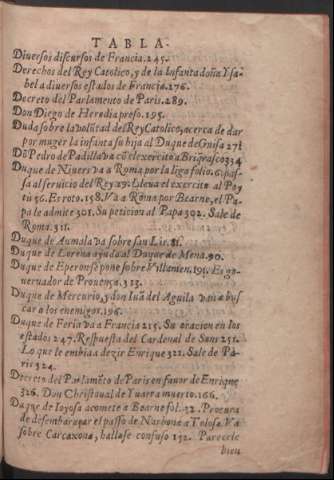 TABLA.
Diuersos discursos de Francia.245.
Derechos del Rey Catolico, y de la Infanta doña Ysa-
bel a diuersos estados de Francia.276.
Decreto del Parlamento de Paris.289.
Don Diego de Heredia preso.195.
Duda sobre la volũtad del Rey Catolico, acerca de dar
por muger la infanta su hija al Duque de Guisa 271
Dõ Pedro de Padilla va cõ el exercito a Brigrasco 334
Duque de Niuers va a Roma por la liga folio.6. pas-
sa al seruicio del Rey 29. Lleua el exercito al Poy
tu 56. Es roto.158. Va a Roma por Bearne, el Pa-
pa le admite 301. Su peticion al Papa 302. Sale de
Roma.311.
Duque de Aumala va sobre san Lis.81.
Duque de Lorena ayuda al Duque de Mena.90.
Duque de Epernon se pone sobre Villamen.191. Es go-
uernador de Proença.313.
Duque de Mercurio, y don Iuã del Aguila van a bus
car a los enemigos.196.
Duque de Feria va a Francia 215. Su oracion en los
estados 247. Respuesta del Cardenal de Sans 251.
Lo que le embia a dezir Enrique 322. Sale de Pa-
ris 324.
Decreto del Parlamẽto de Paris en fauor de Enrique
326. Don Christoual de Yuarra muerto.166.
Duque de Ioyosa acomete a Bearne fol.32. Procura
de desembaraçar el passo de Narbona a Tolosa. Va
sobre Carcaxona, hallase confuso 132. Parecele
bien